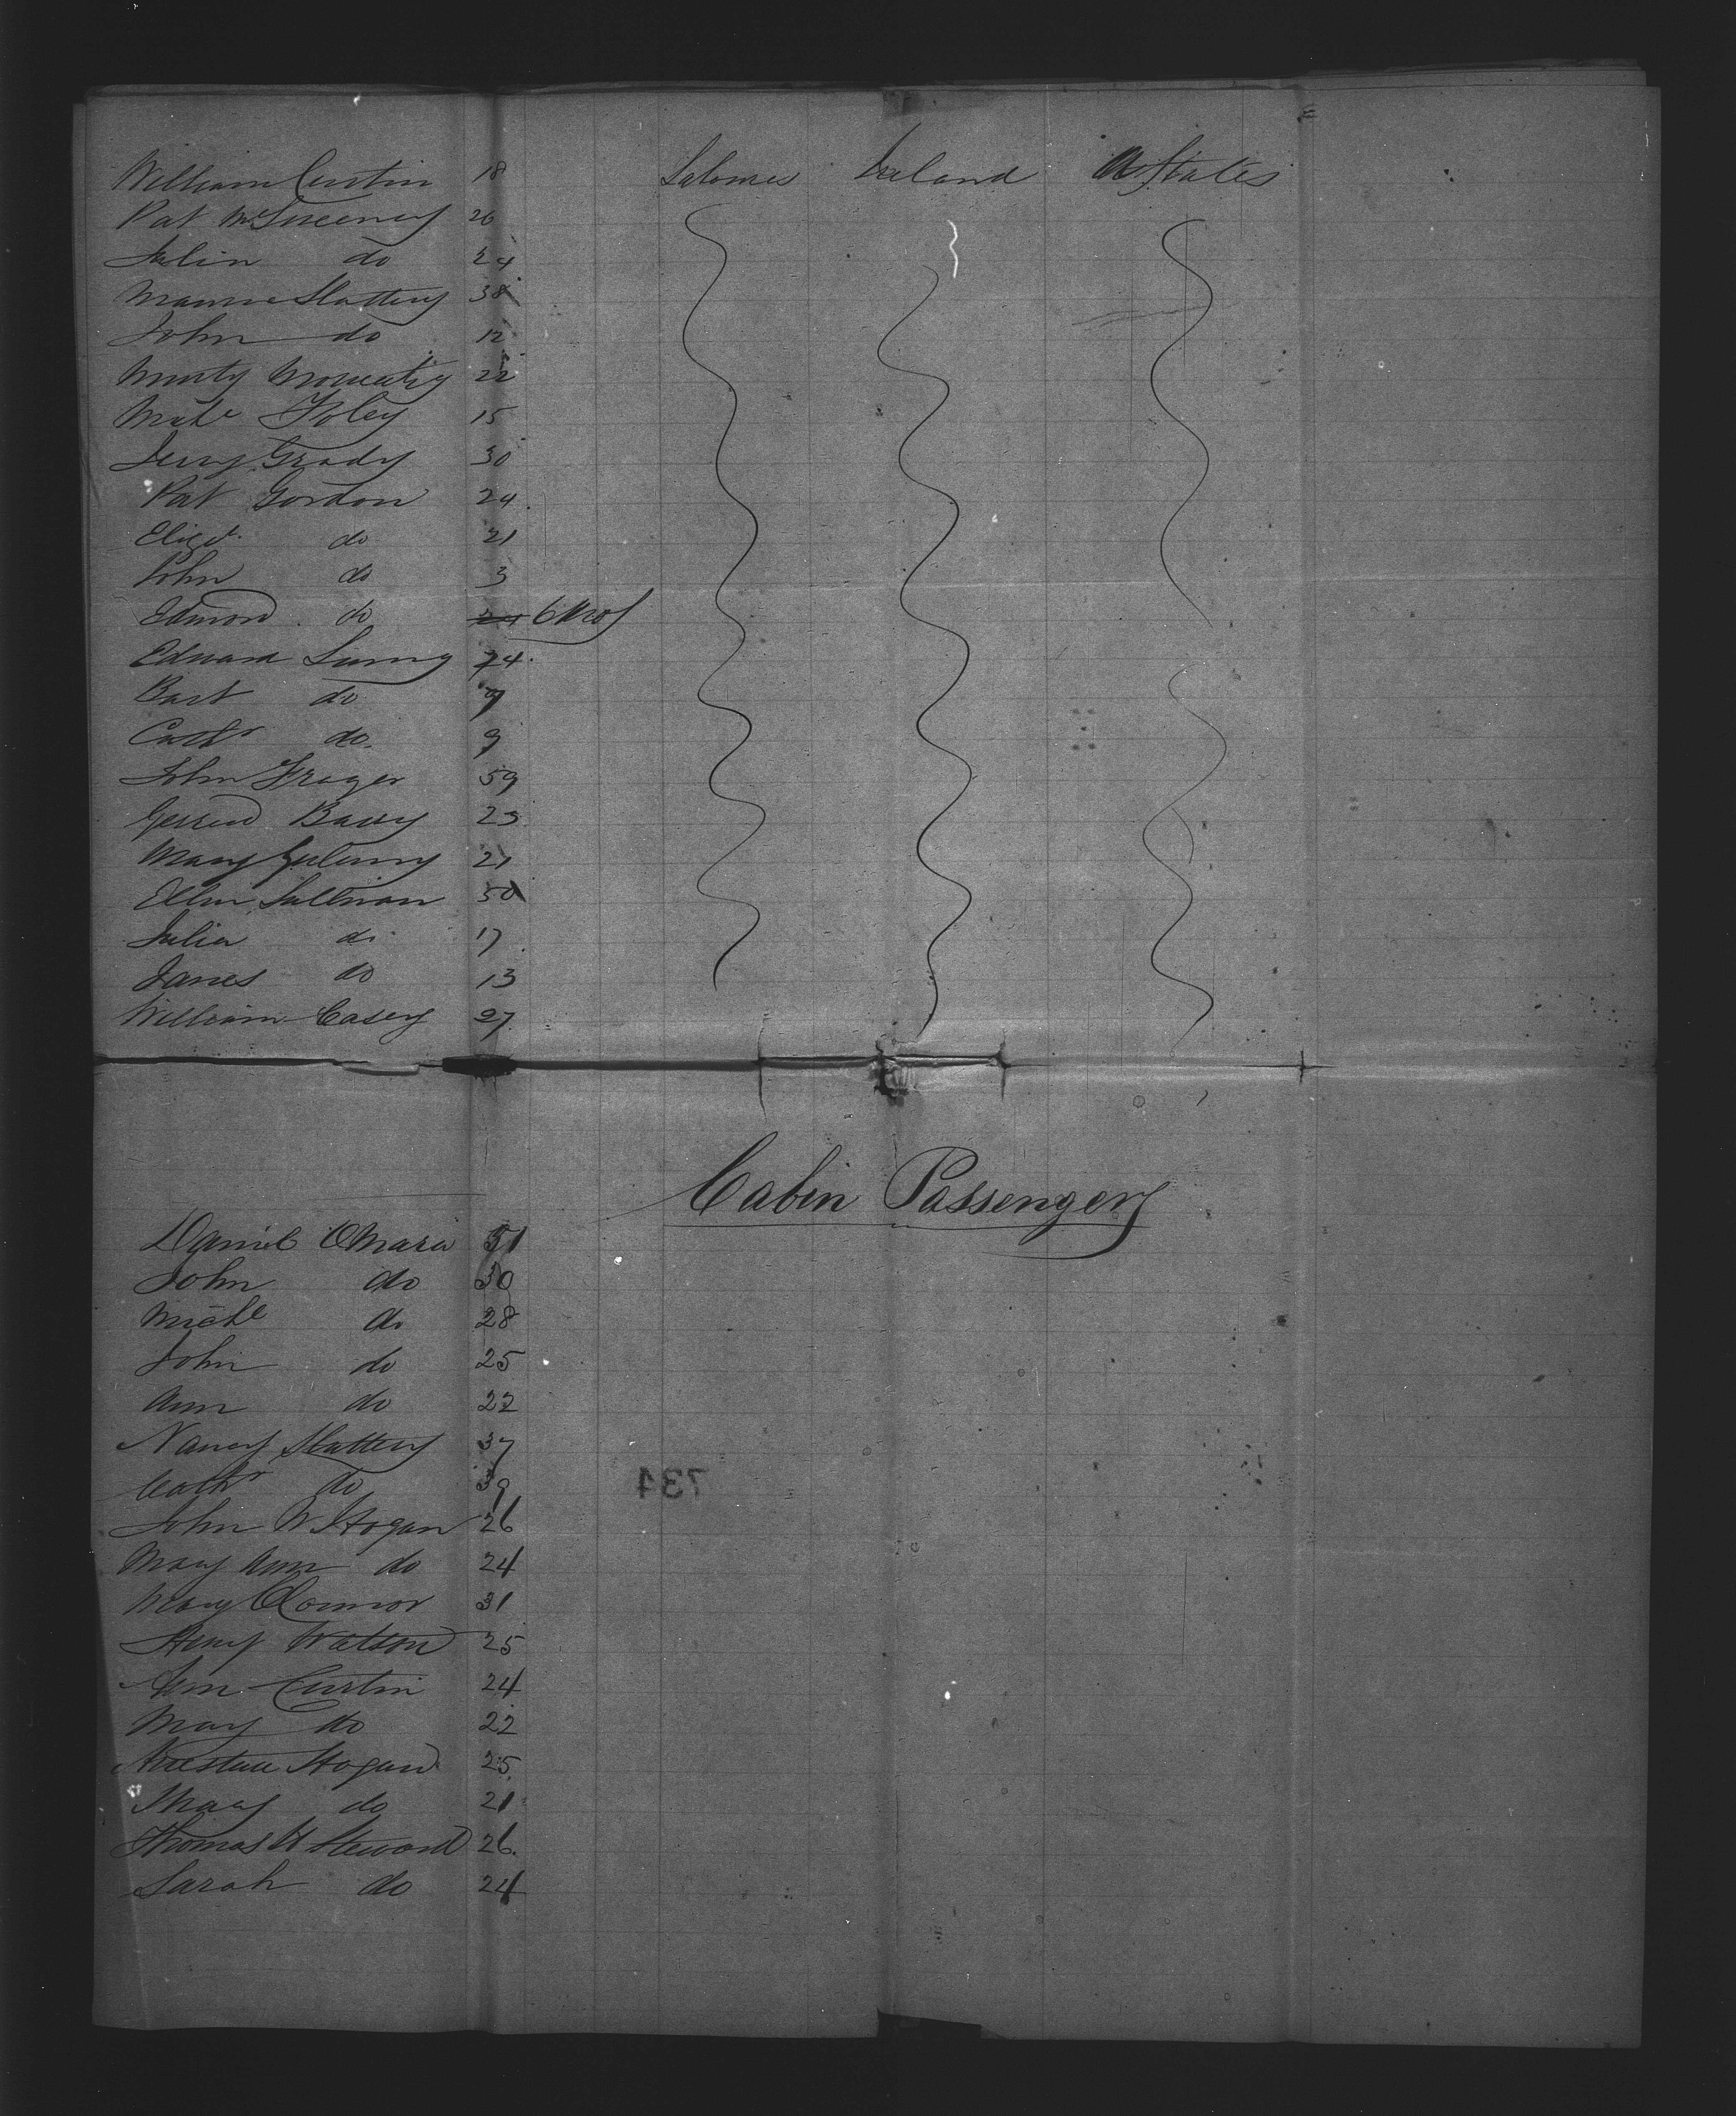 William Curtin 18 Labourer Ireland U States
Pat McSweeney 20
Julia do 24
Maurice Slattery 38
John do 12
Murty Moriarty 22
Michl Foley 15
Jerry Grady 30
Pat Gordon 24
Elizt do 21
John do 3
Edmond do 6 Mos
Edward 24
Bart do 7
Cathr do 9
John 59
Gerred Barry 25
Mary 21
Ellen Sullivan 50
Julia do 17
James do 13
William Casey 27
Cabin Passengers
Daniel OMara 51
John do 30
Michl do 28
John do 25
Ann do 22
Nancy Slattery 37
Cathr do 39
734
John W Hogan 26
Mary Ann do 24
Mary OConnor 31
Henry Watson 25
Curtin 24
Mary do 22
Hogan 25
Mary do 21
Thomas H Steward 26
Sarah do 24